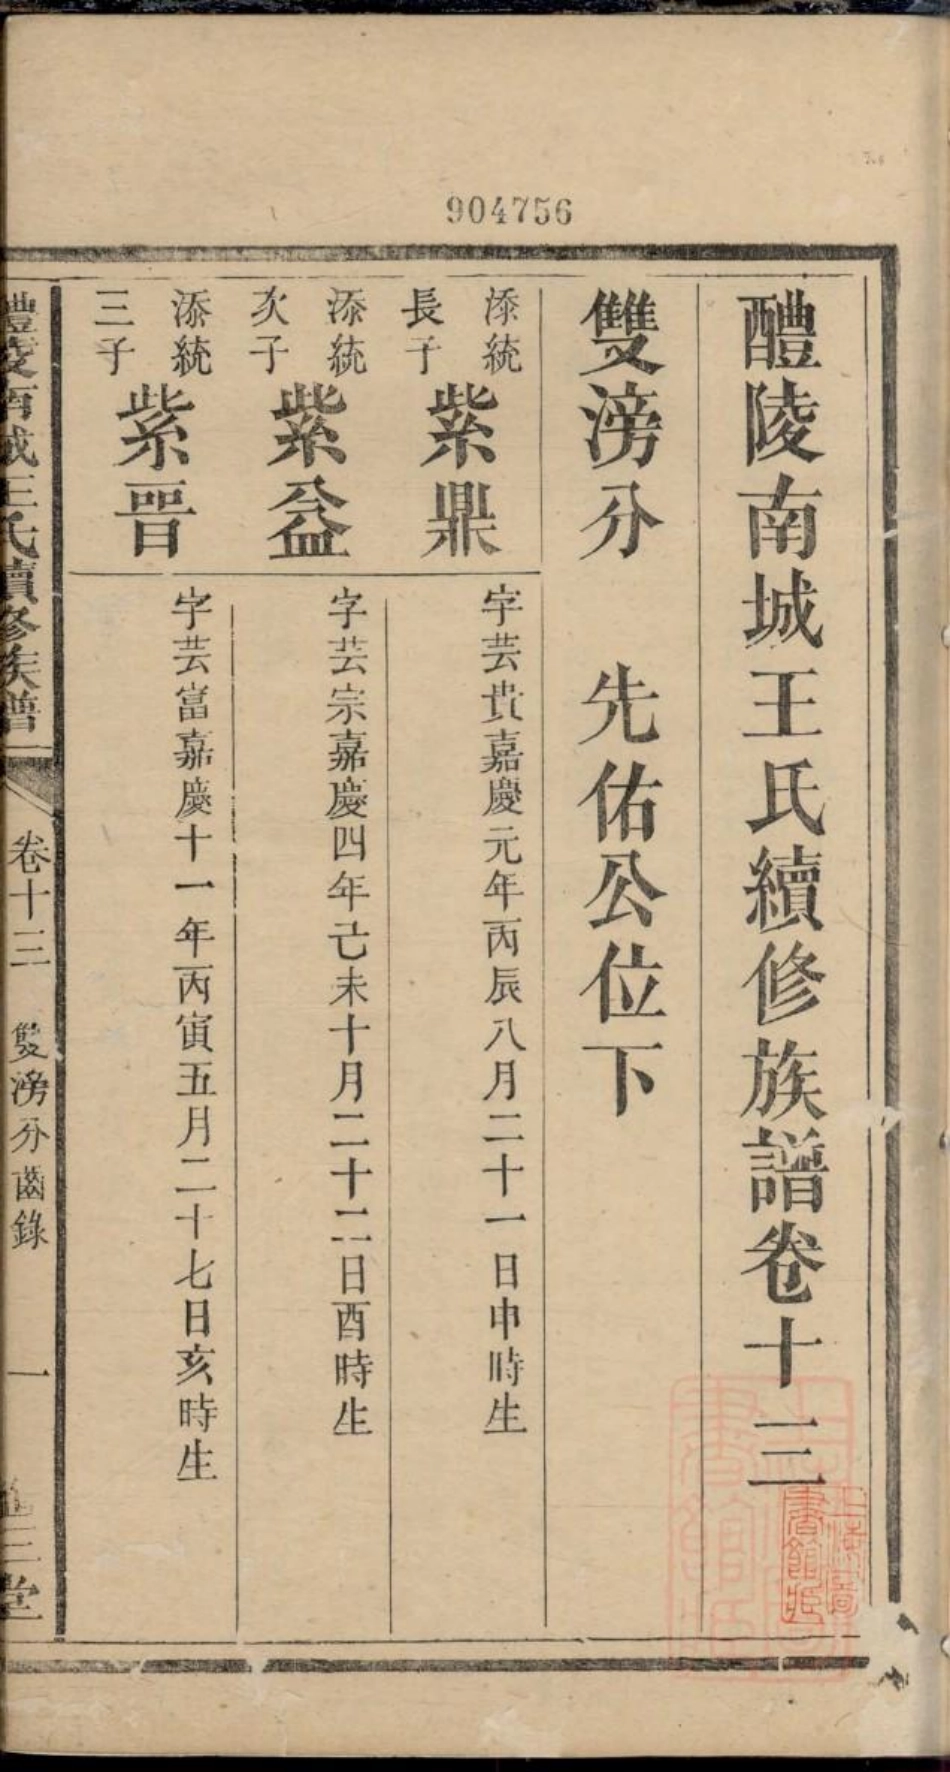 904756
醴陵南城王氏續修族譜卷十三
雙滂分　先佑公位下
添統長子　紫鼎　字芸貴嘉慶元年丙辰八月二十一日申時生
添統次子　紫益　字芸宗嘉慶四年己未十月二十二日酉時生
添統三子　紫晉　字芸富嘉慶十一年丙寅五月二十七日亥時生
醴陵南城王氏續修族譜　卷十三　雙滂分齒錄　一　三堂
上海圖書館藏